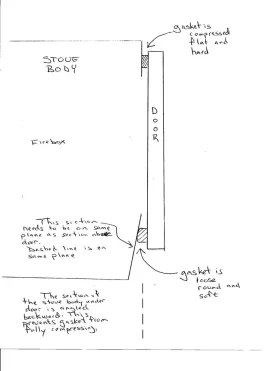 gasket is
compressed
flat and
hard
STOVE
BODY
DOOR
Firebox
This section
needs to be on same
plane as section above
door.
Dashed line is on
same plane
gasket is
loose
round and
soft
The section of
the stove body under
door is angled
backward. This
prevents gasket from
fully compressing.